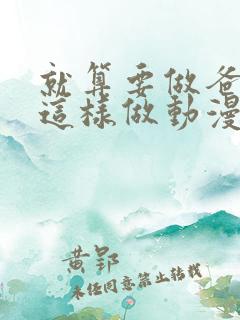 就算要做爸
這樣做動漫
黃郢
未經同意禁止转载